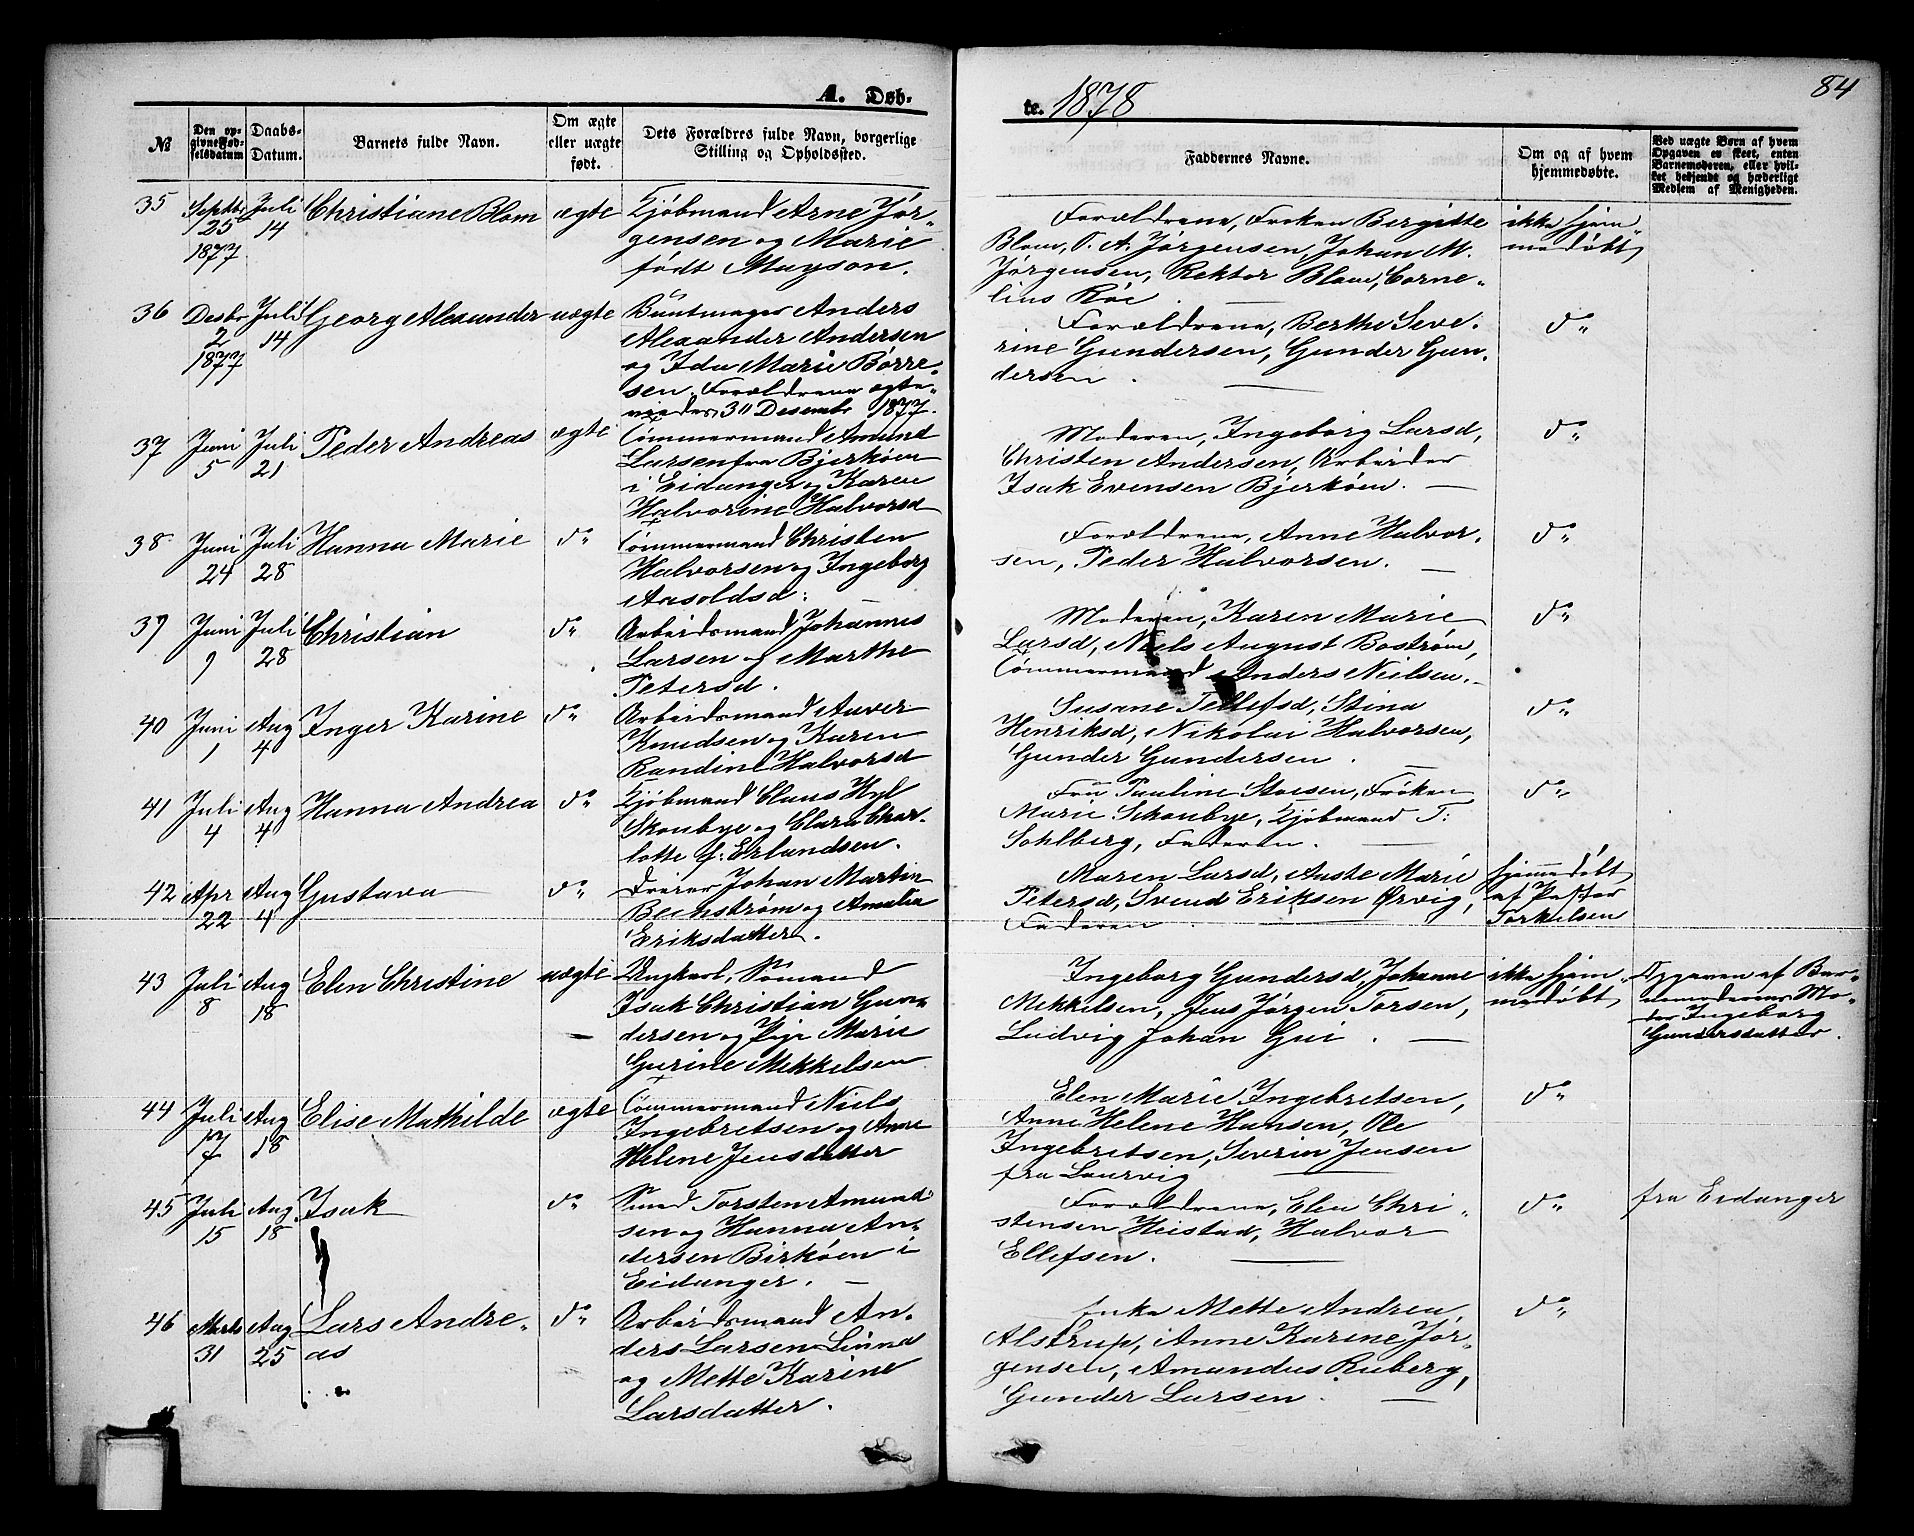 84
A. Døb-
te. 1878
№
Den op-
givne Fød-
selsdatum
Daabs-
Datum.
Barnets fulde Navn.
Om ægte
eller uægte
født.
Dets Forældres fulde Navn, borgerlige
Stilling og Opholdssted.
Faddernes Navne.
Om og af hvem
hjemmedøbte.
Ved uægte Børn af hvem
Opgaven er skeet, enten
Barnemoderen, eller hvil-
ket bekjendt og hæderligt
Medlem af Menigheden.
35 Septbr 25 1877 Juli 14 Christiane Blom ægte
Kjøbmand Arne Jør-
gensen og Marie
født Mayson.
Forældrene, Frøken Bergitte
Blom, T. A. Jørgensen, Johan M.
Jørgensen, Rektor Blom, Corne-
lius Röe.
ikke hjem-
medøbt
36 Desbr 2 1877 Juli 14 Georg Alexander uægte
Buntmager Anders
Alexander Andersen
og Ida Marie Børre-
sen, Forældrene ægte-
viedes 30 Desembr 1877.
Forældrene, Berthe Seve-
rine Gundersen, Gunder Gun-
dersen.
do
37 Juni 5 Juli 21 Peder Andreas ægte
Tømmermand Amund
Larsen fra Bjerköen
i Eidanger og Karen
Halvorine Halvorsd
Moderen, Ingeborg Larsd,
Christen Andersen, Arbeider
Isak Evensen Bjerköen.
do
38 Juni 24 Juli 28 Hanna Marie do
Tømmermand Christen
Halvorsen og Ingeborg
Aasoldsd:
Forældrene, Anne Halvor-
sen, Peder Halvorsen.
do
39 Juni 9 Juli 28 Christian do
Arbeidsmand Johannes
Larsen og Marthe
Petersd.
Moderen, Karen Marie
Larsd, Niels August Boström,
Tömmermand Anders Nielsen.
do
40 Juni 1 Aug 4 Inger Karine do
Arbeidsmand Anver
Knudsen og Karen
Randine Halvorsd
Susane Tellefsd, Stina
Henriksd, Nikolai Halvorsen,
Gunder Gundersen.
do
41 Juli 4 Aug 4 Hanna Andrea do
Kjøbmand Claus Hyl
Skouboe og Clara Char-
lotte f. Erlandsen.
Fru Pauline Stoesen, Frøken
Marie Schoubye, Kjøbmand T:
Sohlberg, Faderen.
do
42 Apr 22 Aug 4 Gustava do
Dreier Johan Martin
Bechström og Amalia
Eriksdatter.
Maren Larsd, Aaste Marie
Petersd, Svend Eriksen Ørvig,
Faderen.
hjemmedøbt
af Pastor
Torkelsen
43 Juli 8 Aug 18 Elen Christine uægte
Ungkarl, Sömand
Isak Christian Gun-
dersen og Pige Marie
Gurine Mekkelsen
Ingeborg Gundersd, Johanne
Mekkelsen, Jens Jørgen Torsen,
Ludvig Johan Gui.
ikke hjem-
medøbt
Opgaven af Bar-
nemoderens Mo-
der Ingeborg
Gundersdatter.
44 Juli 17 Aug 18 Elise Mathilde ægte
Tömmermand Niels
Ingebretsen og Anne
Helene Jensdatter
Elen Marie Ingebretsen,
Anne Helene Hansen, Ole
Ingebretsen, Severin Jensen
fra Laurvig
do
45 Juli 15 Aug 18 Isak do
Smed Torsten Amund-
sen og Hanna An-
dersen Birköen i
Eidanger.
Forældrene, Elen Chri-
stensen Heistad, Halvor
Ellefsen.
do
fra Eidanger
46 Marts 31 Aug 25 Lars Andre-
as do
Arbeidsmand An-
ders Larsen Lünd
og Mette Karine
Larsdatter.
Enke Mette Andrea
Alstrup, Anne Karine Jør-
gensen, Amandus Ruberg,
Gunder Larsen.
do